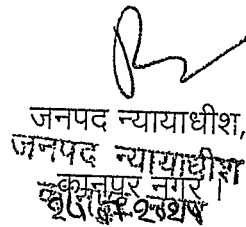 जनपद न्यायाधीश,
जनपद न्यायाधीश
कानपुर नगर ।